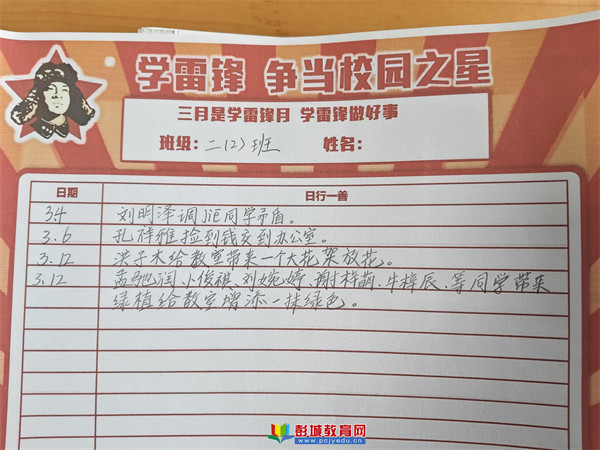 学雷锋 争当校园之星
三月是学雷锋月 学雷锋做好事
班级：二(2)班 姓名：
日期 日行一善
3.4 刘明泽调JIE同学矛盾。
3.6 孔祥雅捡到钱交到办公室。
3.12 洪子木给教室带来一个大花架放花。
3.12 孟驰润、卜俊祺、刘婉婷、谢梓萌、牛梓辰、等同学带来
绿植给教室增添一抹绿色。
彭城教育网
www.pcjyedu.cn